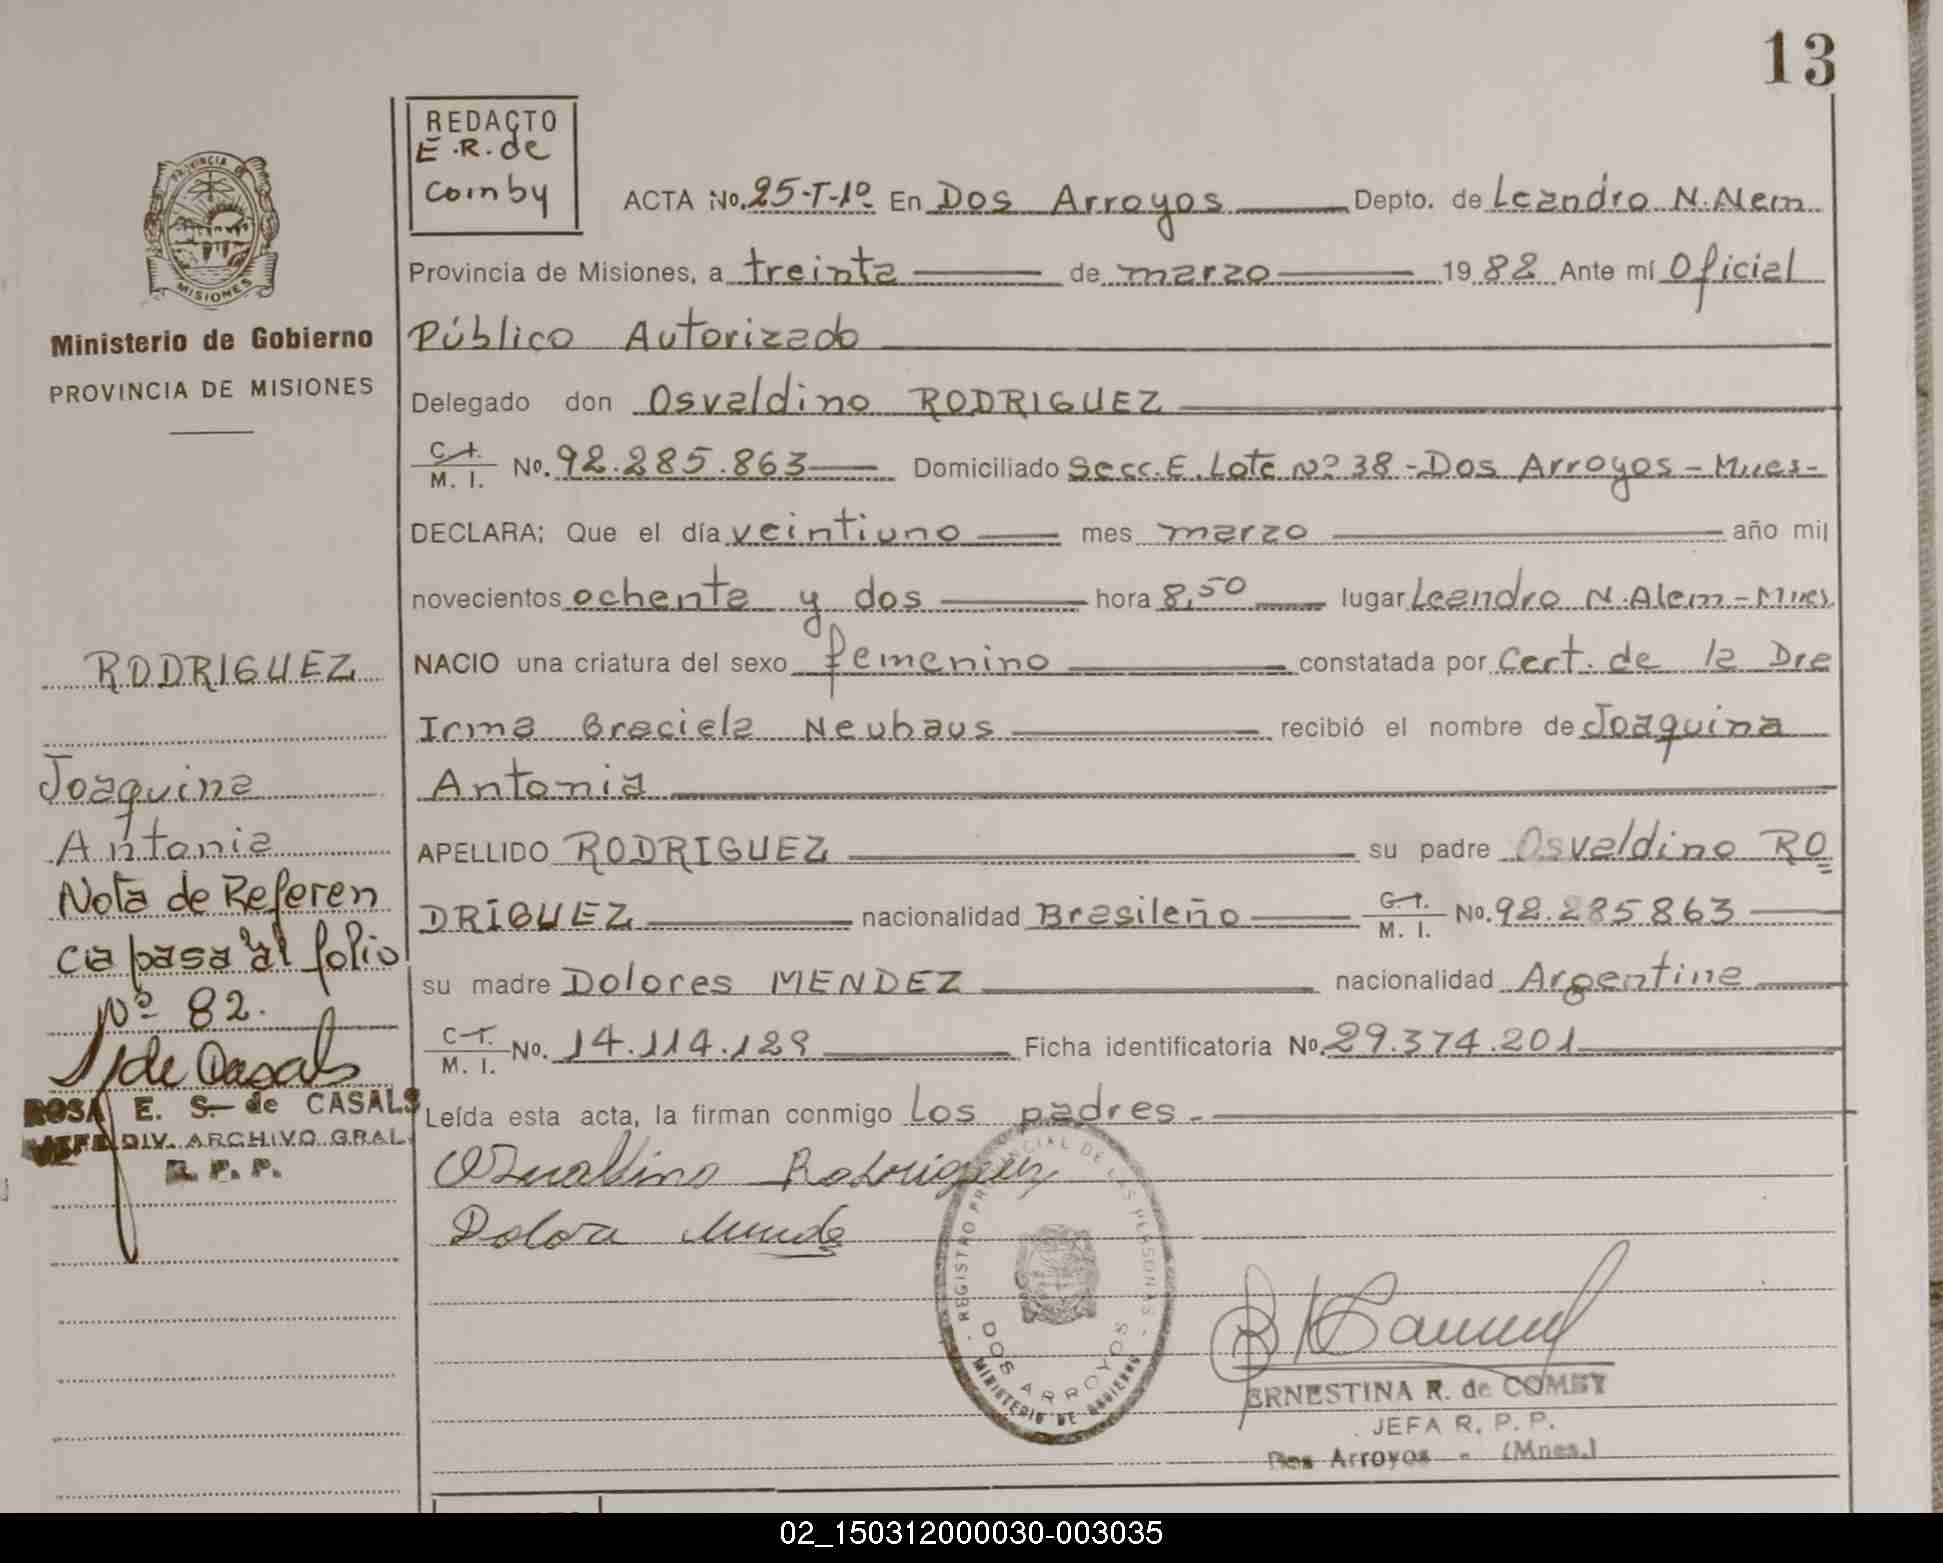 13
REDACTO
E.R. de
Comby
ACTA No. 25-T-1º En Dos Arroyos Depto. de Leandro N. Alem
Provincia de Misiones, a treinta de marzo 1982 Ante mí Oficial
Público Autorizado
Delegado don Osvaldino RODRIGUEZ
C.I. M. I. No. 92.285.863 Domiciliado Secc. E. Lote Nº 38 - Dos Arroyos - Mnes -
DECLARA; Que el día veintiuno mes marzo año mil
novecientos ochenta y dos hora 8,50 lugar Leandro N. Alem - Mnes
NACIO una criatura del sexo femenino constatada por Cert. de la Dra
Irma Graciela Neuhaus recibió el nombre de Joaquina
Antonia
APELLIDO RODRIGUEZ su padre Osvaldino RO
DRIGUEZ nacionalidad Brasileño C.I. M. I. No. 92.285863
su madre Dolores MENDEZ nacionalidad Argentina
C.I. M. I. No. 14.114.129 Ficha identificatoria No. 29.374.201
Leída esta acta, la firman conmigo Los padres.-
Osvaldino Rodriguez
REGISTRO PROVINCIAL DE LAS PERSONAS
DOS ARROYOS
MINISTERIO DE GOBIERNO
ERNESTINA R. de COMBY
JEFA R. P. P.
Dos Arroyos - (Mnes.)
PROVINCIA DE
MISIONES
Ministerio de Gobierno
PROVINCIA DE MISIONES
RODRIGUEZ
Joaquina
Antonia
Nota de Referen
cia pasa al folio
Nº 82.
de Casals
ROSA E. S. de CASALS
JEFE DIV. ARCHIVO GRAL.
R. P. P.
02_150312000030-003035